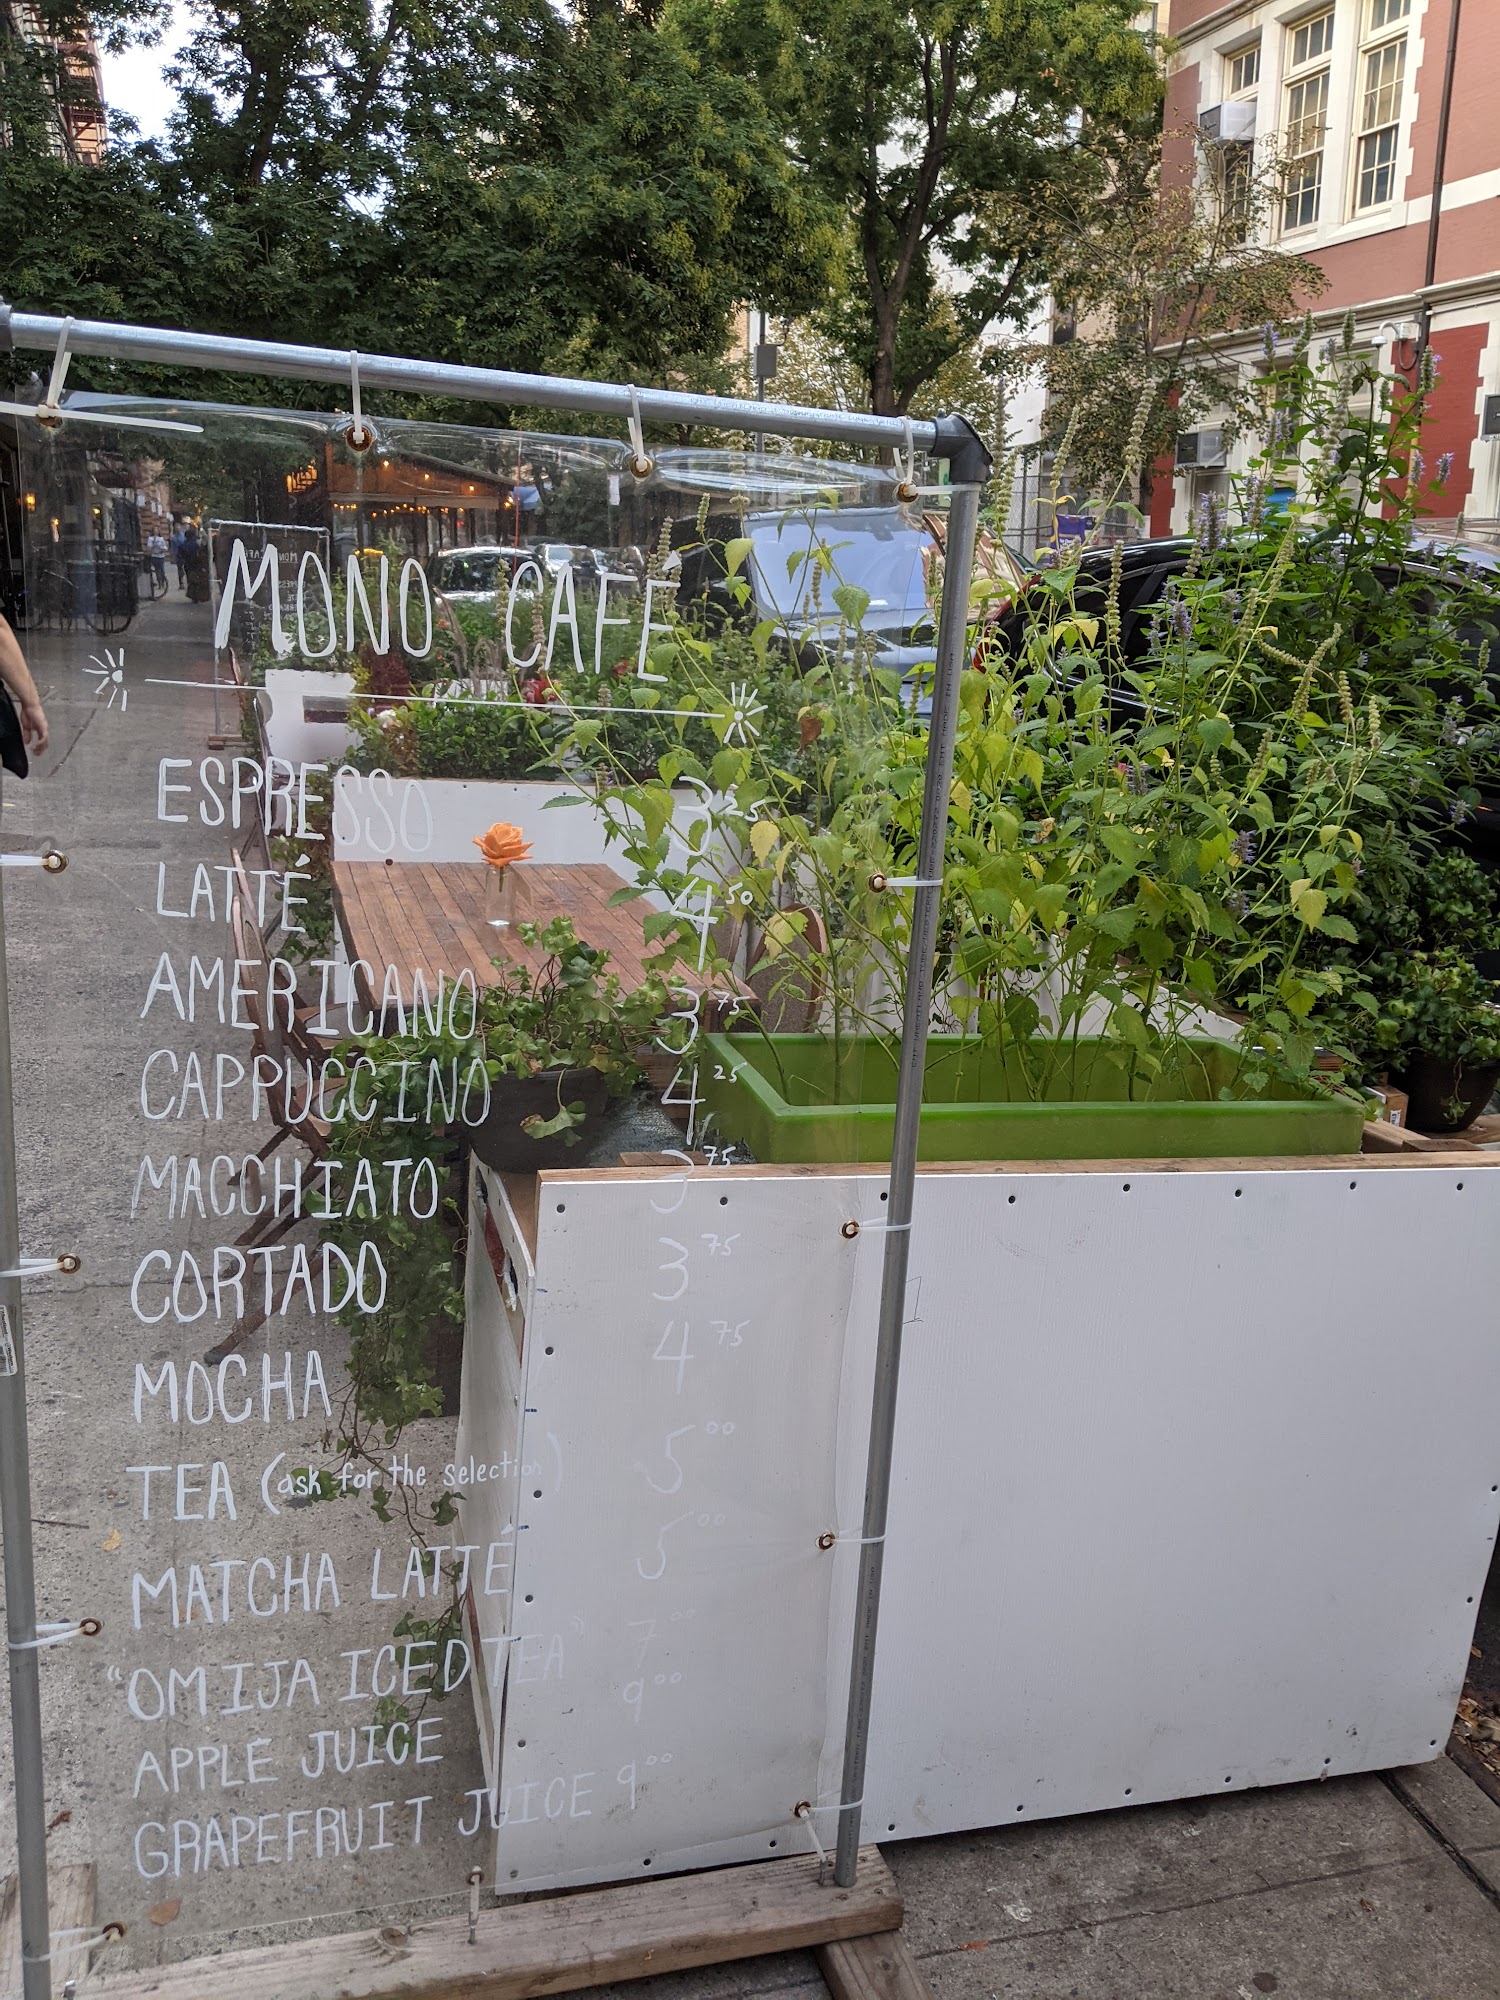 MONO CAFÉ
ESPRESSO 3 25
LATTÉ 4 50
AMERICANO 3 75
CAPPUCCINO 4 25
MACCHIATO 3 75
CORTADO 3 75
MOCHA 4 75
TEA (ask for the selection) 5 00
MATCHA LATTÉ 5 00
"OMIJA ICED TEA" 7 00
APPLE JUICE 9 00
GRAPEFRUIT JUICE 9 00